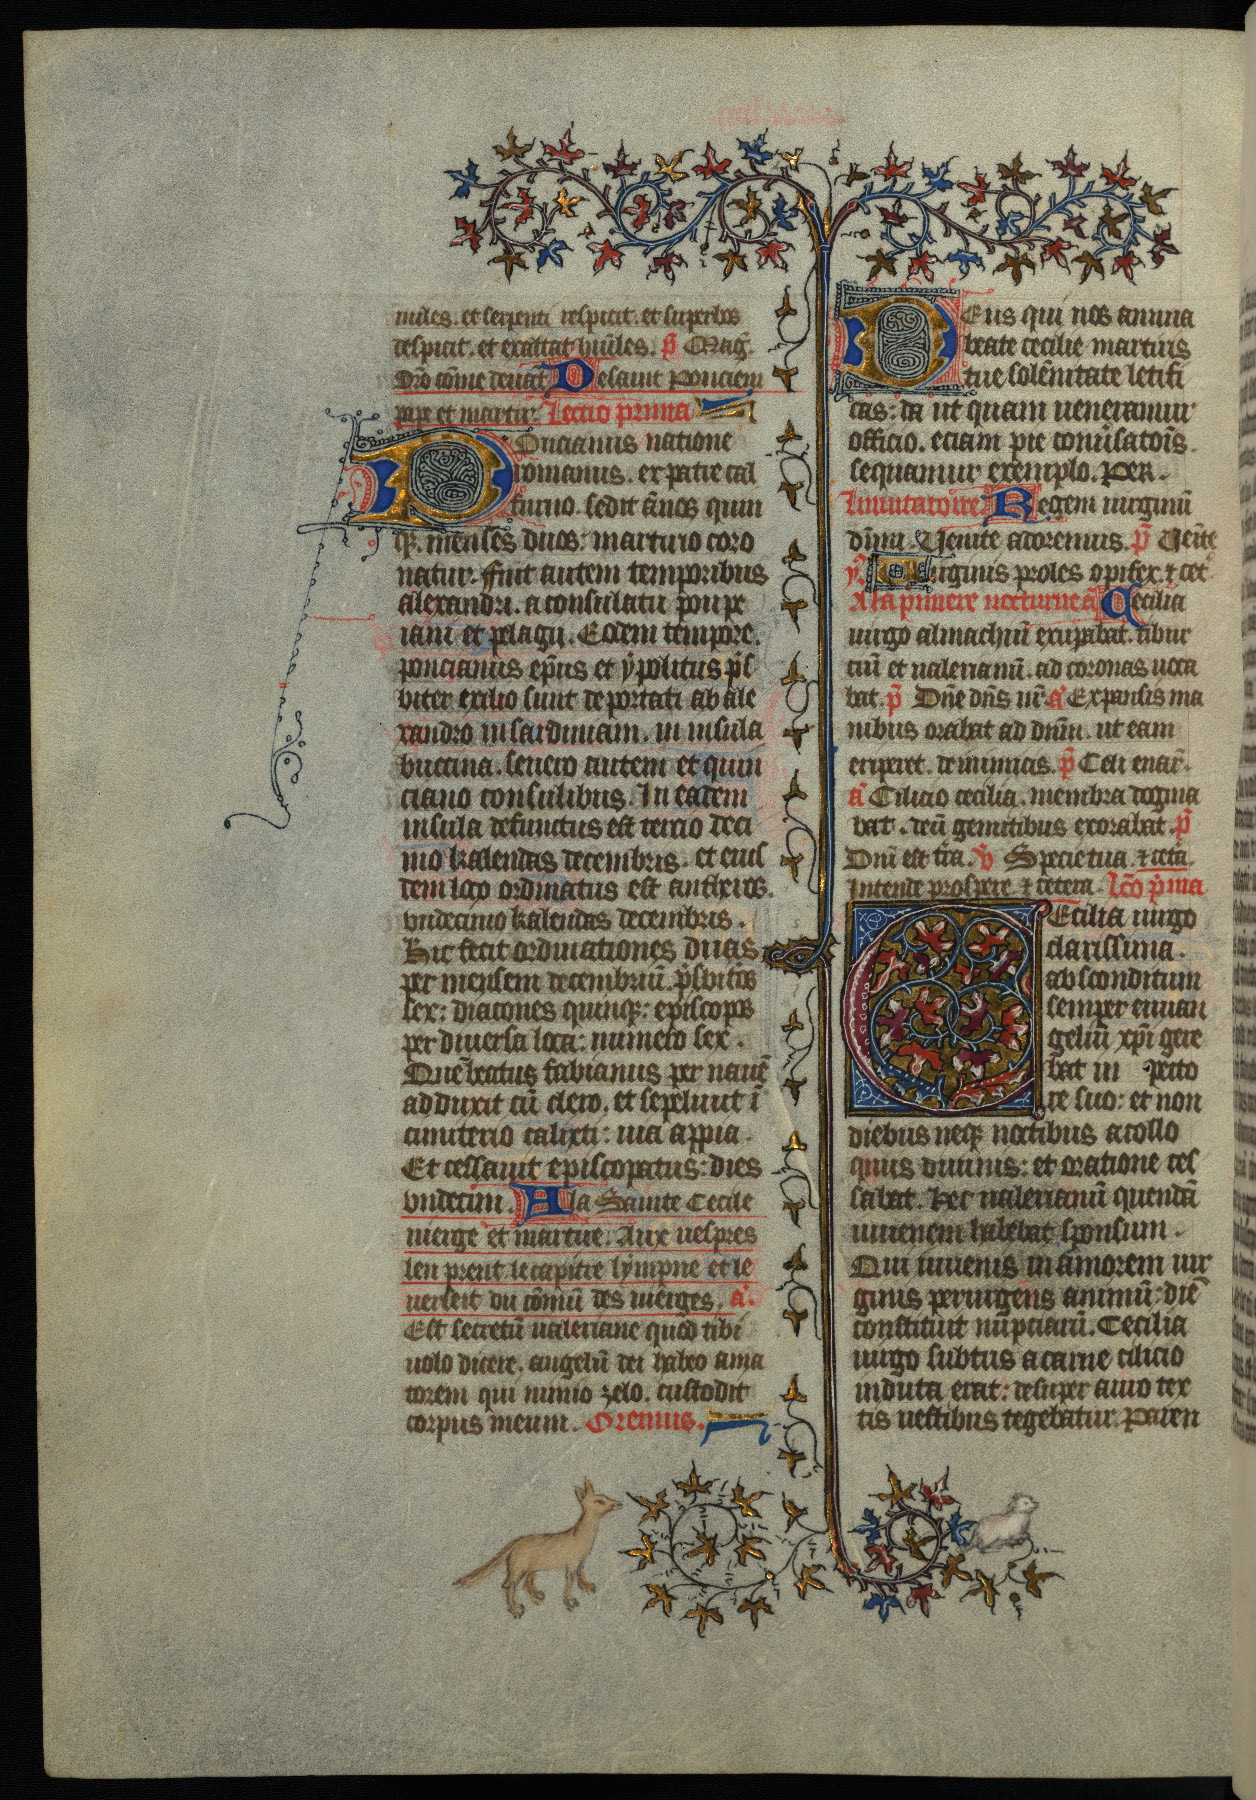 miles. et serpenti respicit. et superbos
despicit. et exaltat hūiles. p̄ Maḡ.
Orō cōme deuāt De saint Poncien
pape et martir. Lectio p̄rima
Poncianus natione
romanus. ex patre cal
furnio. sedit ān̄os quin
qꝫ. menses duos: martirio coro
natur. Fuit autem temporibus
alexandri. a consulatu pompe
iani et pelagii. Eodem tempore.
poncianus ep̄us et ypolitus p̄s
biter exilio sunt deportati ab ale
xandro in sardiniam. in insula
buccina. seuero autem et quin
ciano consulibus. In eadem
insula defunctus est tercio deci
mo kalendas decembris. et eius
dem loco ordinatus est antheros.
vndecimo kalendas decembris.
Hic fecit ordinationes duas
per mensem decembriū. p̄sbitōs
sex: diacones quinqꝫ: episcopos
per diuersa loca: numero sex.
Quē beatus fabianus per nauē
adduxit cū clero. et sepeliuit ī
cimiterio calixti: uia appia.
Et cessauit episcopatus: dies
vndecim. A la Sainte Cecile
uierge et martire. Aux uespres
len prent le capitre lympne et le
uerseit du cōmū des uierges. a̾.
Est secretū ualeriane quod tibi
uolo dicere. angelū dei habeo ama
torem qui nimio zelo. custodit
corpus meum. Oremus.
Deus qui nos annua
beate cecilie martiris
tue solēnitate letifi
cas: da ut quam ueneramur
officio. eciam pie conūsatoīs
sequamur exemplo. Per.
Inuitatoire Regem uirginū
dīnm. Uenite adoremus. p̄ Uenīte
y̾. Uirginis proles opifex. ⁊ cet̄
A la primere nocturne a̾ Cecilia
uirgo almachiū exup̄abat. tibur
ciū et ualerianū. ad coronas uoca
bat. p̄ Dn̄e dn̄s nr̄ a̾ Expansis ma
nibus orabat ad dn̄m. ut eam
eriperet. de inimicis. p̄ Celi enar̄.
a̾ Cilicio cecilia. membra doma
bat. deū gemitibus exorabat. p̄
Dn̄i est tr̄a. v̄ Specie tua. ⁊ cet̄a.
Intende prospere ⁊ cetera. Lc̄o p̄ma
Cecilia uirgo
clarissima.
absconditum
semper euuan
geliū xp̄i gere
bat in pecto
re suo: et non
diebus neqꝫ noctibus a collo
quiis diuinis: et oratione ces
sabat. Hec ualerianū quendā
iuuenem habebat sponsum.
Qui iuuenis in amorem uir
ginis periurgens animū: diē
constituit nūptiarū. Cecilia
uirgo subtus a carne cilicio
induta erat: desuper auro tex
tis uestibus tegebatur. Paren